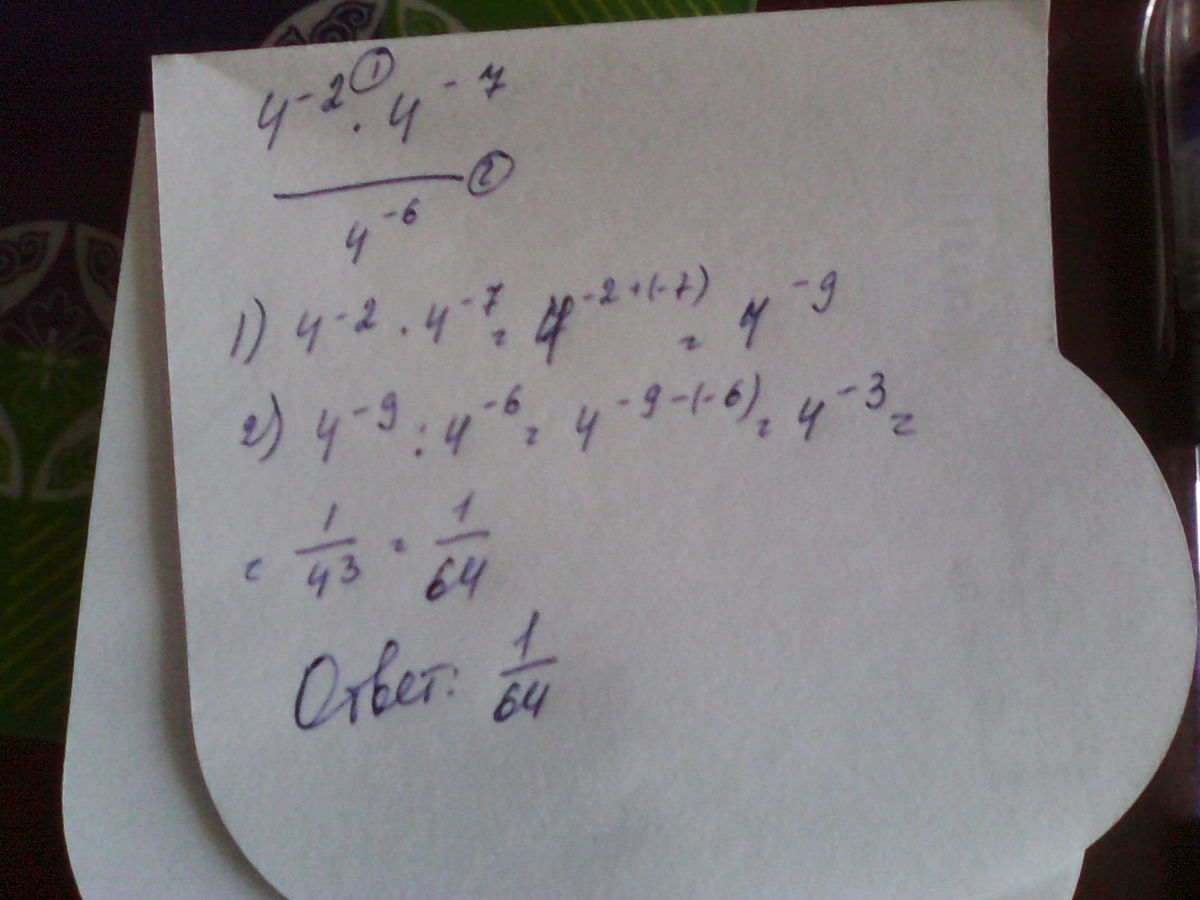 4⁻² ① · 4⁻⁷
――― ②
4⁻⁶
1) 4⁻² · 4⁻⁷ = 4⁻²⁺⁽⁻⁷⁾ = 4⁻⁹
2) 4⁻⁹ : 4⁻⁶ = 4⁻⁹⁻⁽⁻⁶⁾ = 4⁻³ =
= 1/4³ = 1/64
Ответ: 1/64